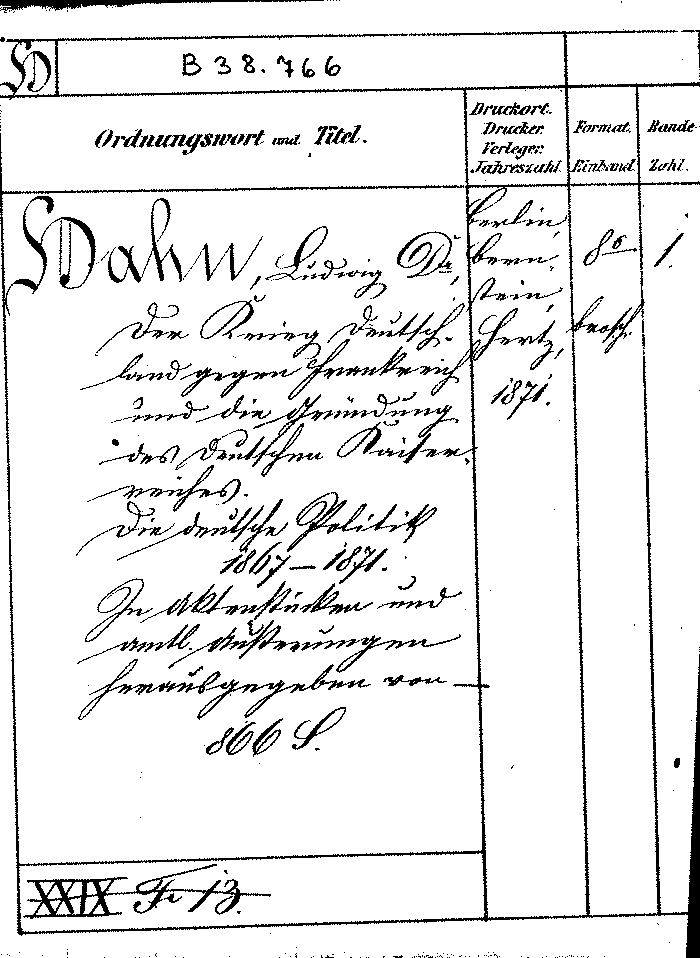 H
B 38.766
Ordnungswort und Titel.
Druckort.
Drucker.
Verleger.
Jahreszahl.
Format.
Einband.
Bände-
Zahl.
Hahn, Ludwig Dr,
Der Krieg Deutsch-
land gegen Frankreich
und die Gründung
des deutschen Kaiser-
reiches.
Die deutsche Politik
1867–1871.
In Aktenstücken und
amtl. Äußerungen
herausgegeben von —
866 S.
Berlin,
Hertz,
1871.
8°
brosch.
1.
XXIX Fr 13.